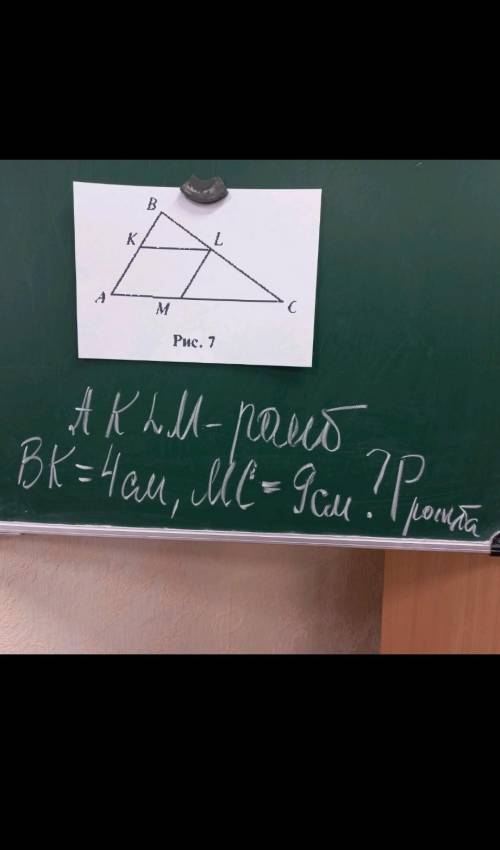 B
K L
A M C
Рис. 7
AKLM - ромб
BK = 4 см, MC = 9 см. ? P ромба